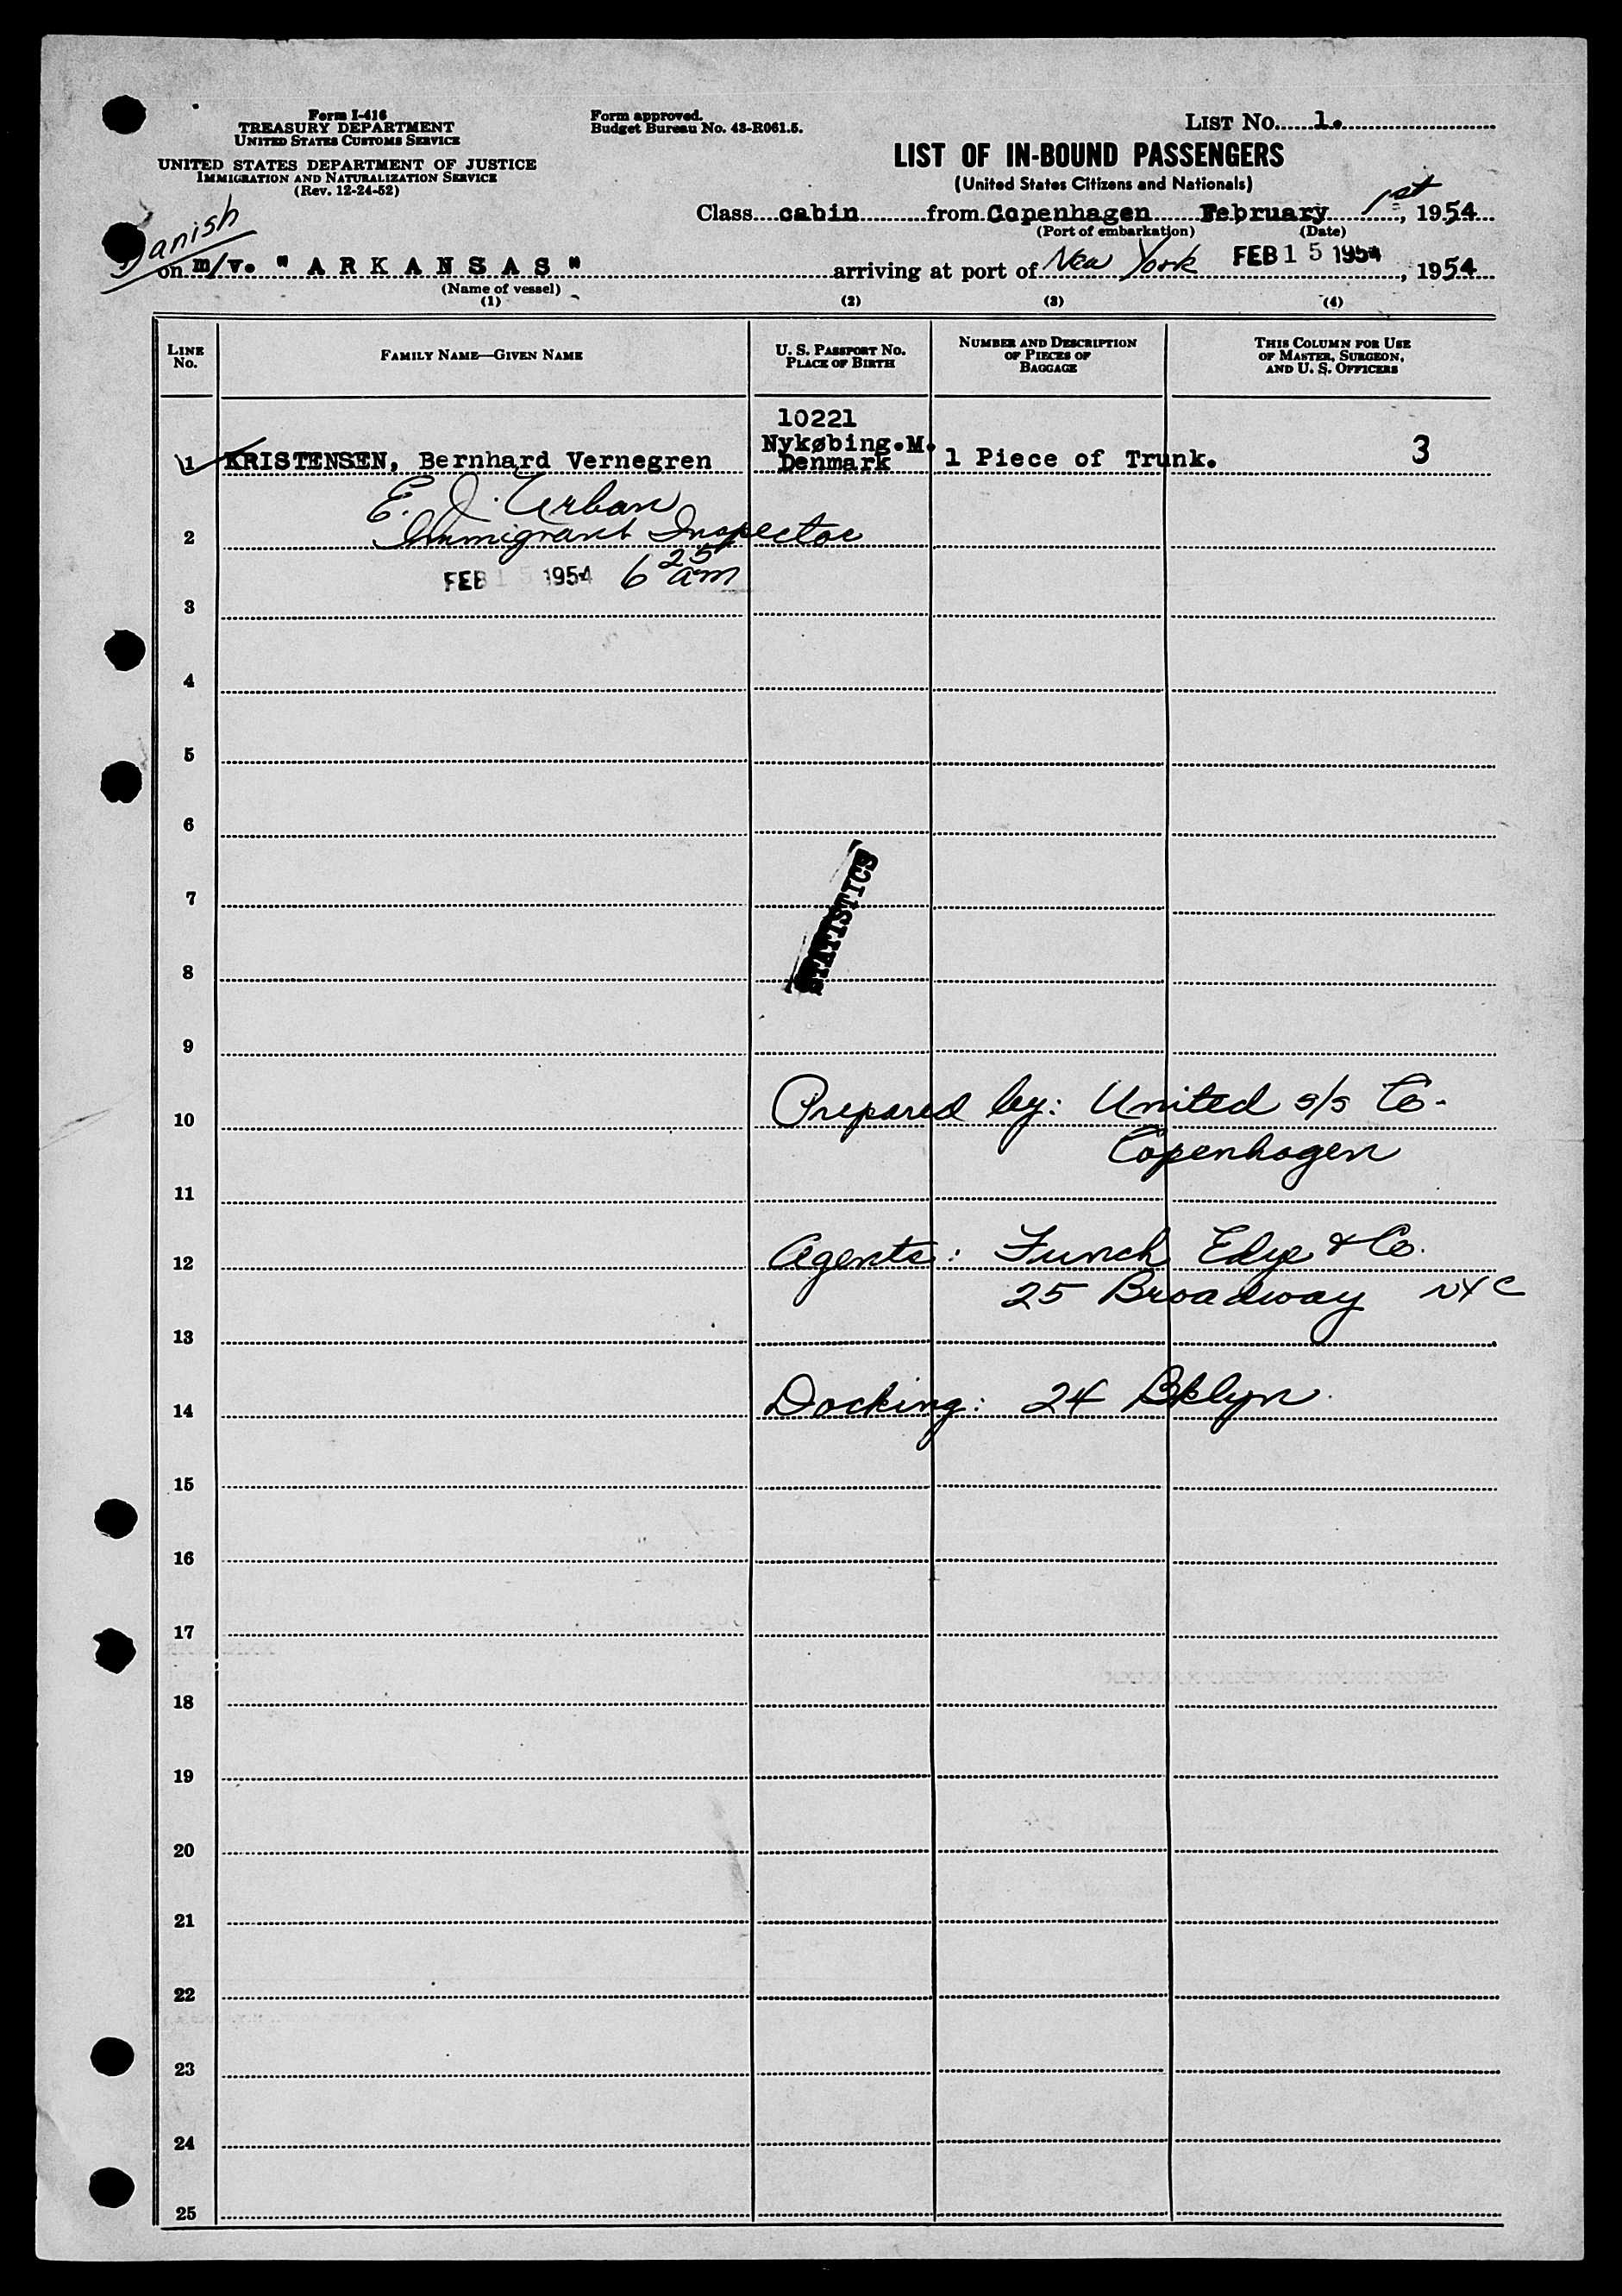 Form I-416
TREASURY DEPARTMENT
UNITED STATES CUSTOMS SERVICE
UNITED STATES DEPARTMENT OF JUSTICE
IMMIGRATION AND NATURALIZATION SERVICE
(Rev. 12-24-52)
Form approved.
Budget Bureau No. 43-R061.5.
LIST No. 1.
LIST OF IN-BOUND PASSENGERS
(United States Citizens and Nationals)
Class cabin from Copenhagen February 1st, 1954
(Port of embarkation) (Date)
Danish
on m/v. "ARKANSAS" arriving at port of New York FEB 15 1954, 1954
(Name of vessel)
(1) (2) (3) (4)
LINE No.
FAMILY NAME—GIVEN NAME
U. S. PASSPORT NO.
PLACE OF BIRTH
NUMBER AND DESCRIPTION
OF PIECES OF
BAGGAGE
THIS COLUMN FOR USE
OF MASTER, SURGEON,
AND U. S. OFFICERS
10221
Nykøbing.M.
1 KRISTENSEN, Bernhard Vernegren Denmark 1 Piece of Trunk. 3
E. J. Urban
2 Immigrant Inspector
FEB 15 1954 6 25 am
3
4
5
6
7
STATISTICS
8
9
10 Prepared by: United s/s Co.
Copenhagen
11
12 Agents: Funch Edye & Co.
25 Broadway NYC
13
14 Docking: 24 Bklyn.
15
16
17
18
19
20
21
22
23
24
25